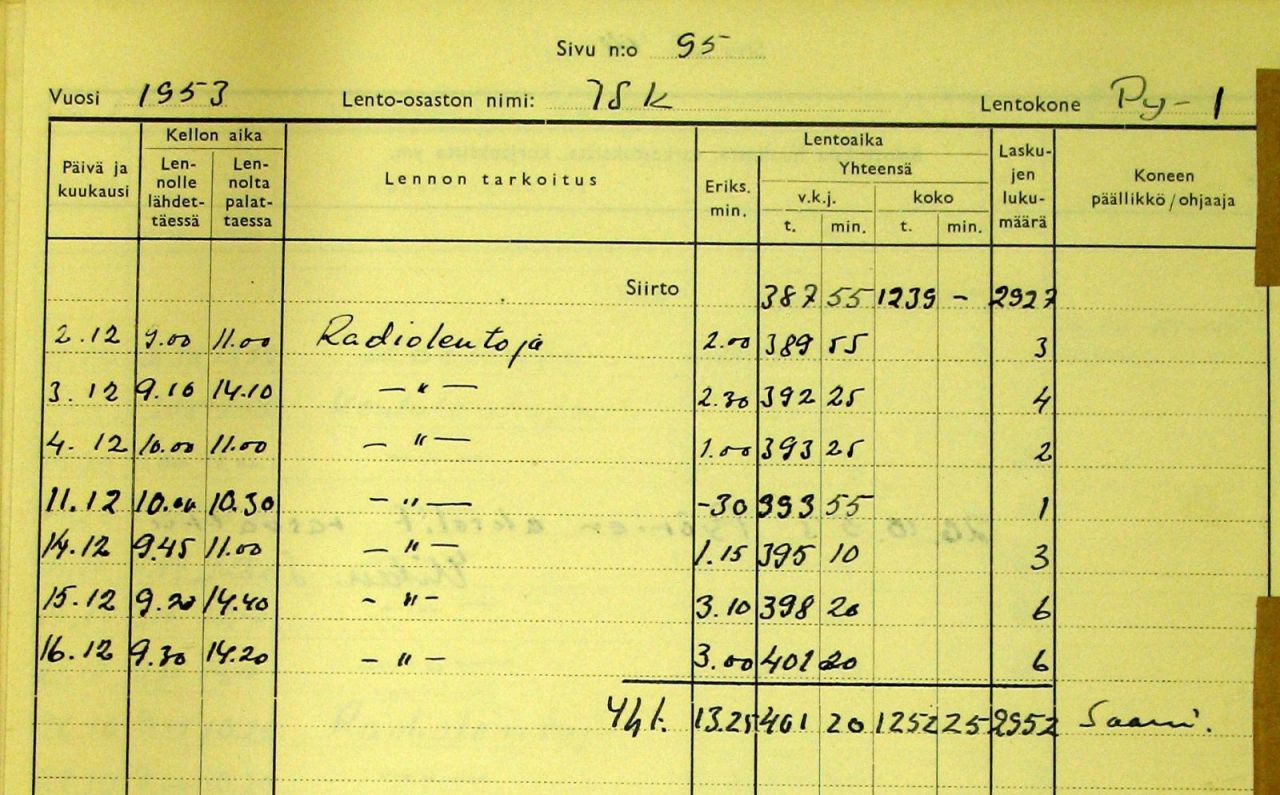 Sivu n:o 95
Vuosi 1953 Lento-osaston nimi: ISK Lentokone Py-1
Päivä ja kuukausi Kellon aika Lennolle lähdettäessä Lennolta palattaessa Lennon tarkoitus Eriks. min. Lentoaika Yhteensä v.k.j. t. min. koko t. min. Laskujen lukumäärä Koneen päällikkö/ohjaaja
Siirto 387 55 1239 - 2927
2.12 9.00 11.00 Radiolentoja 2.00 389 55 3
3.12 9.10 14.10 — " — 2.30 392 25 4
4.12 10.00 11.00 — " — 1.00 393 25 2
11.12 10.00 10.30 — " — -30 393 55 1
14.12 9.45 11.00 — " — 1.15 395 10 3
15.12 9.20 14.40 - " - 3.10 398 20 6
16.12 9.30 14.20 - " - 3.00 401 20 6
Yht. 13.25 401 20 1252 25 2952 Saarni.